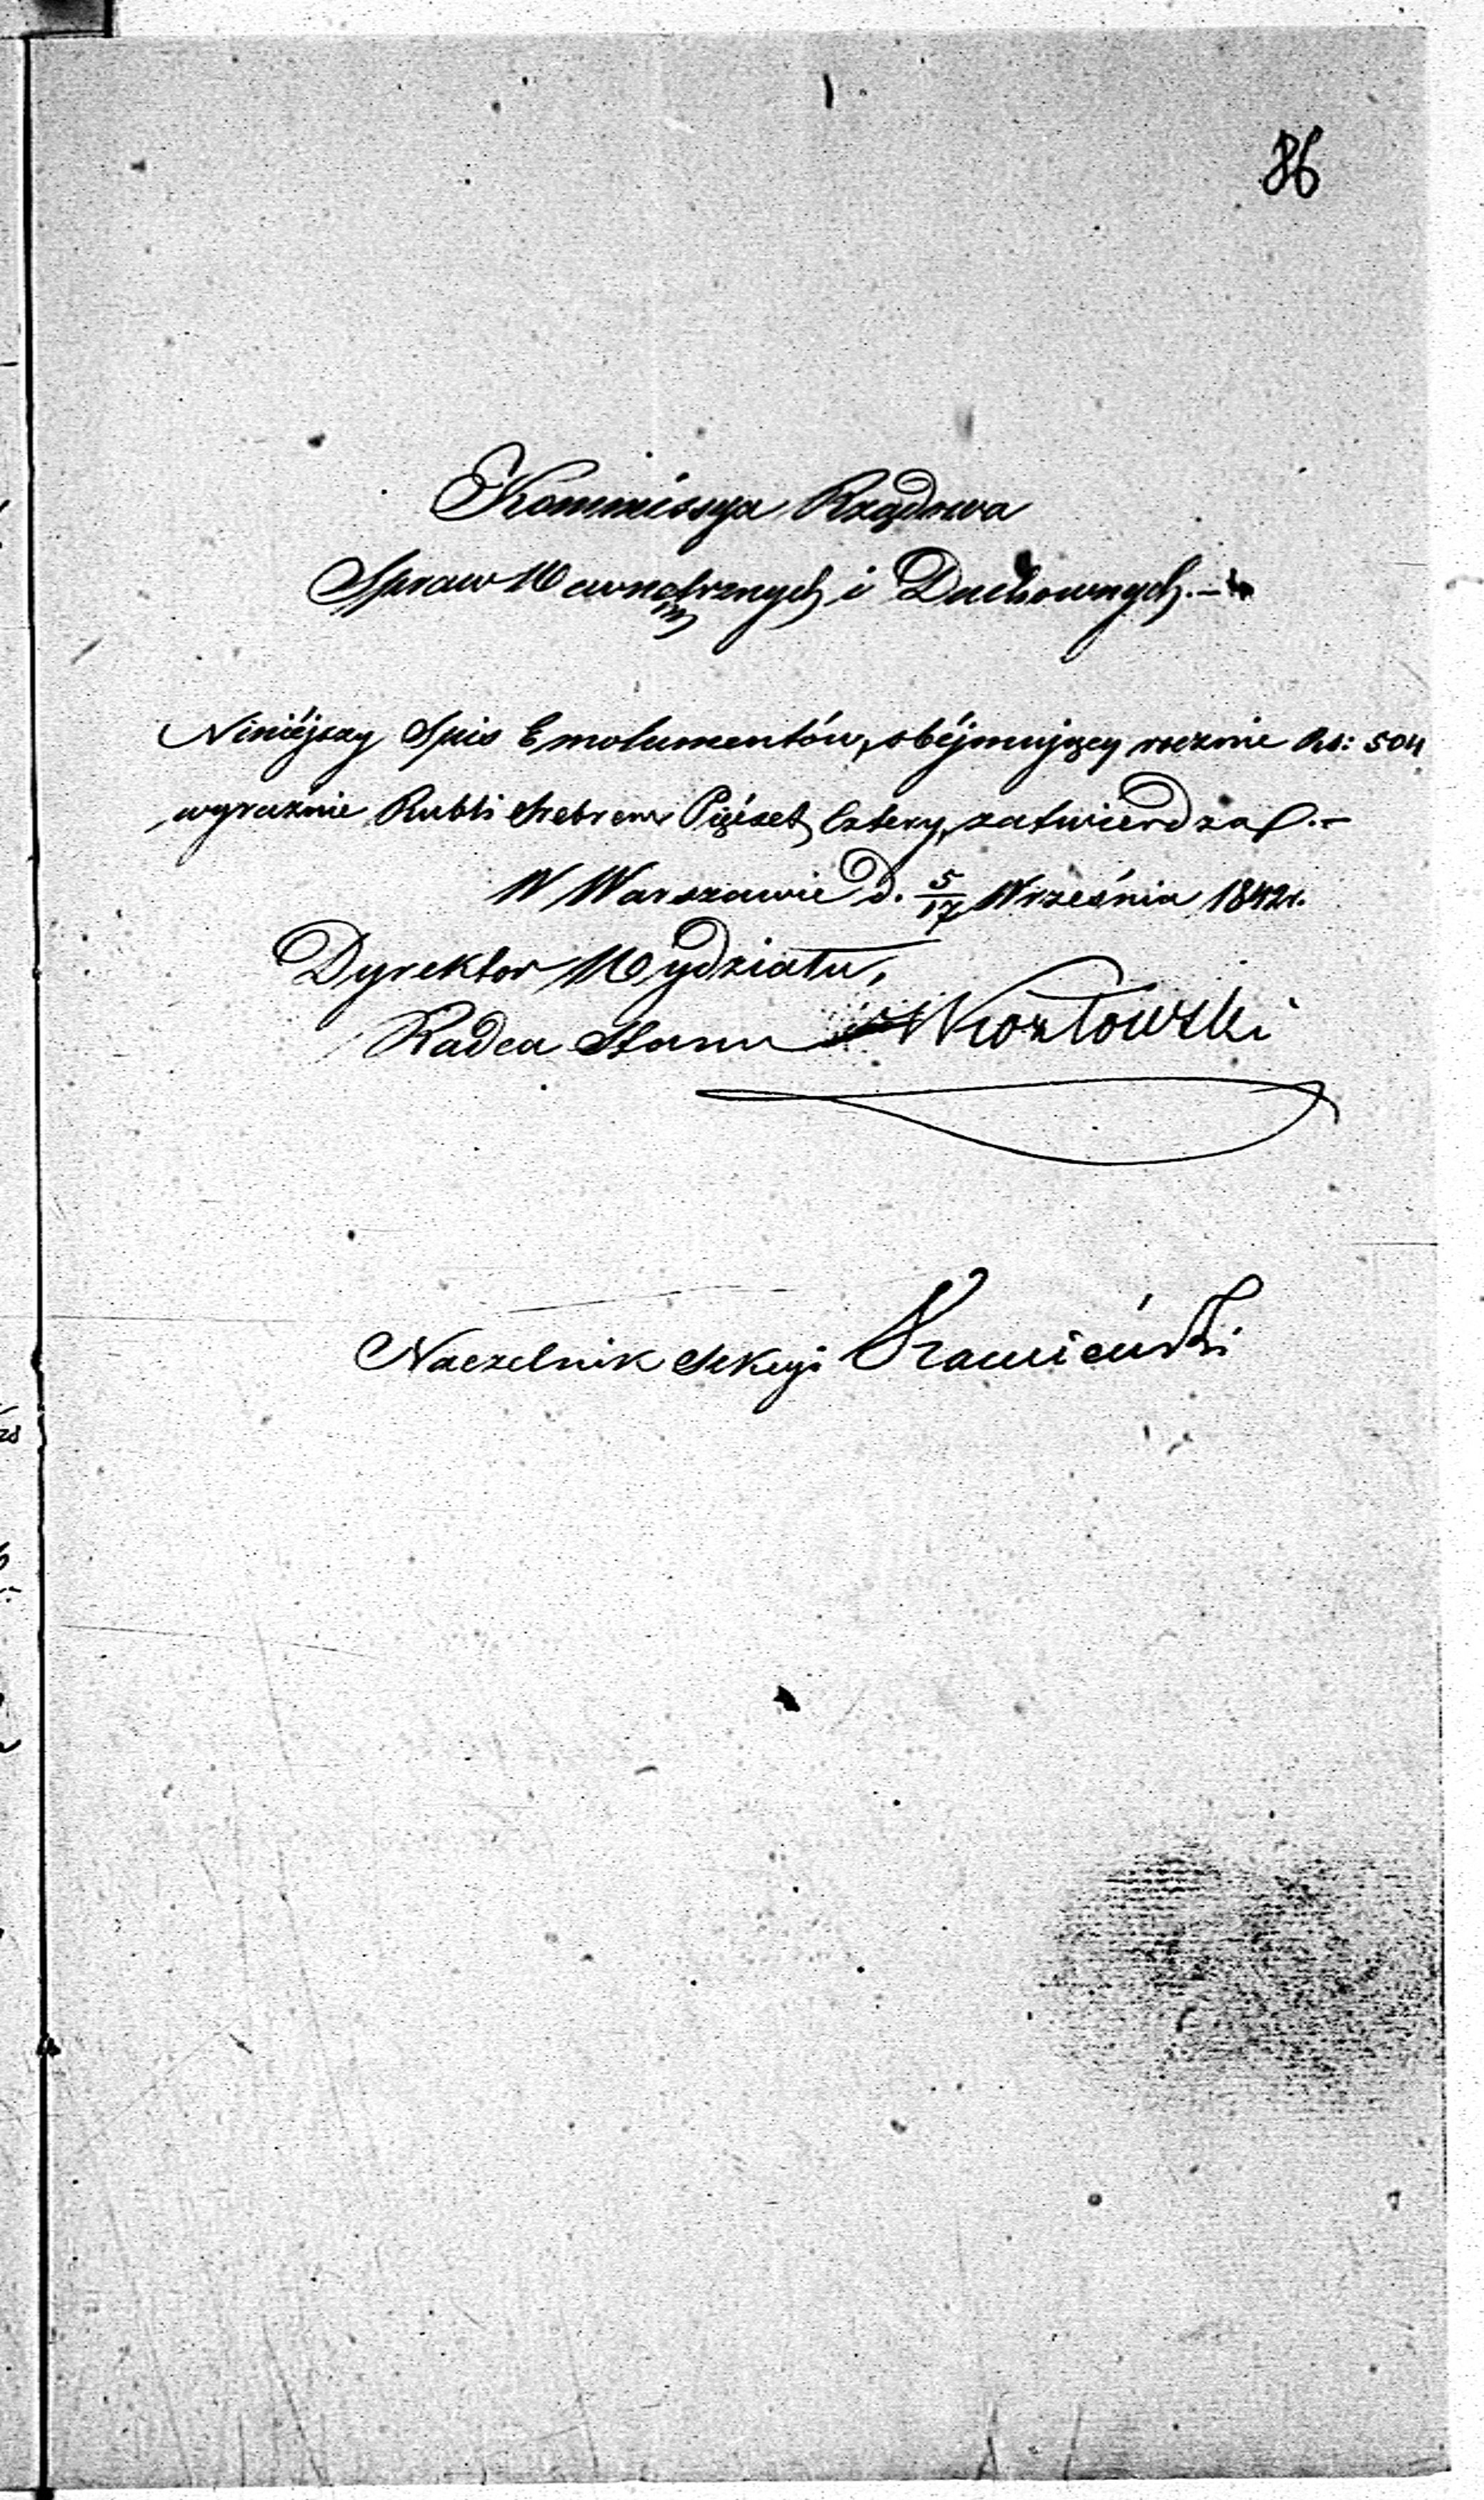 86
Kommissya Rządowa
Spraw Wewnętrznych i Duchownych.-
Niniéjszy Spis Emolumentów, obéjmujący rocznie Rs: 504
wyraźnie Rubli Srebrem Pięćset Cztery, zatwierdza.-
W Warszawie d. 5/17 Września 1842r.
Dyrektor Wydziału,
Radca Stanu Kozłowski
Naczelnik Sekcyi Kamieński